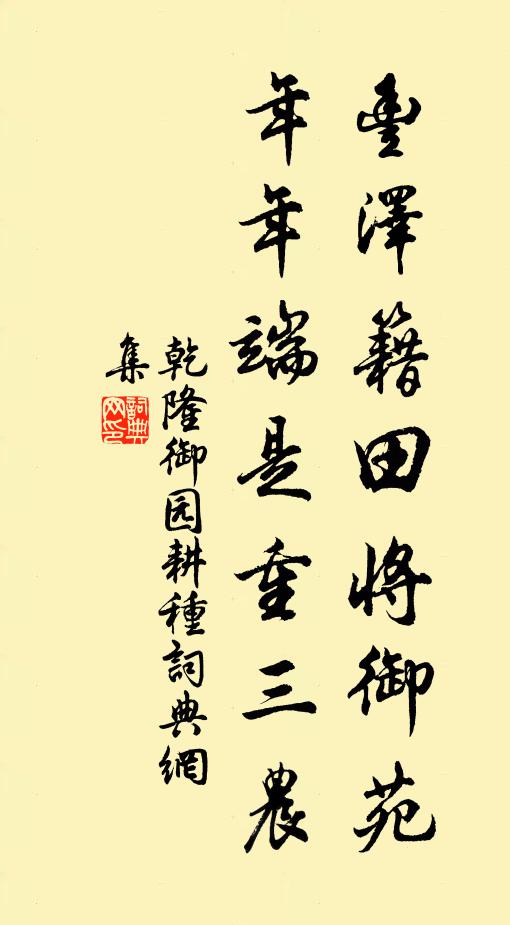 豊澤籍田將御苑
年年端是重三農
乾隆御园耕種詞典網
集
詞典网印